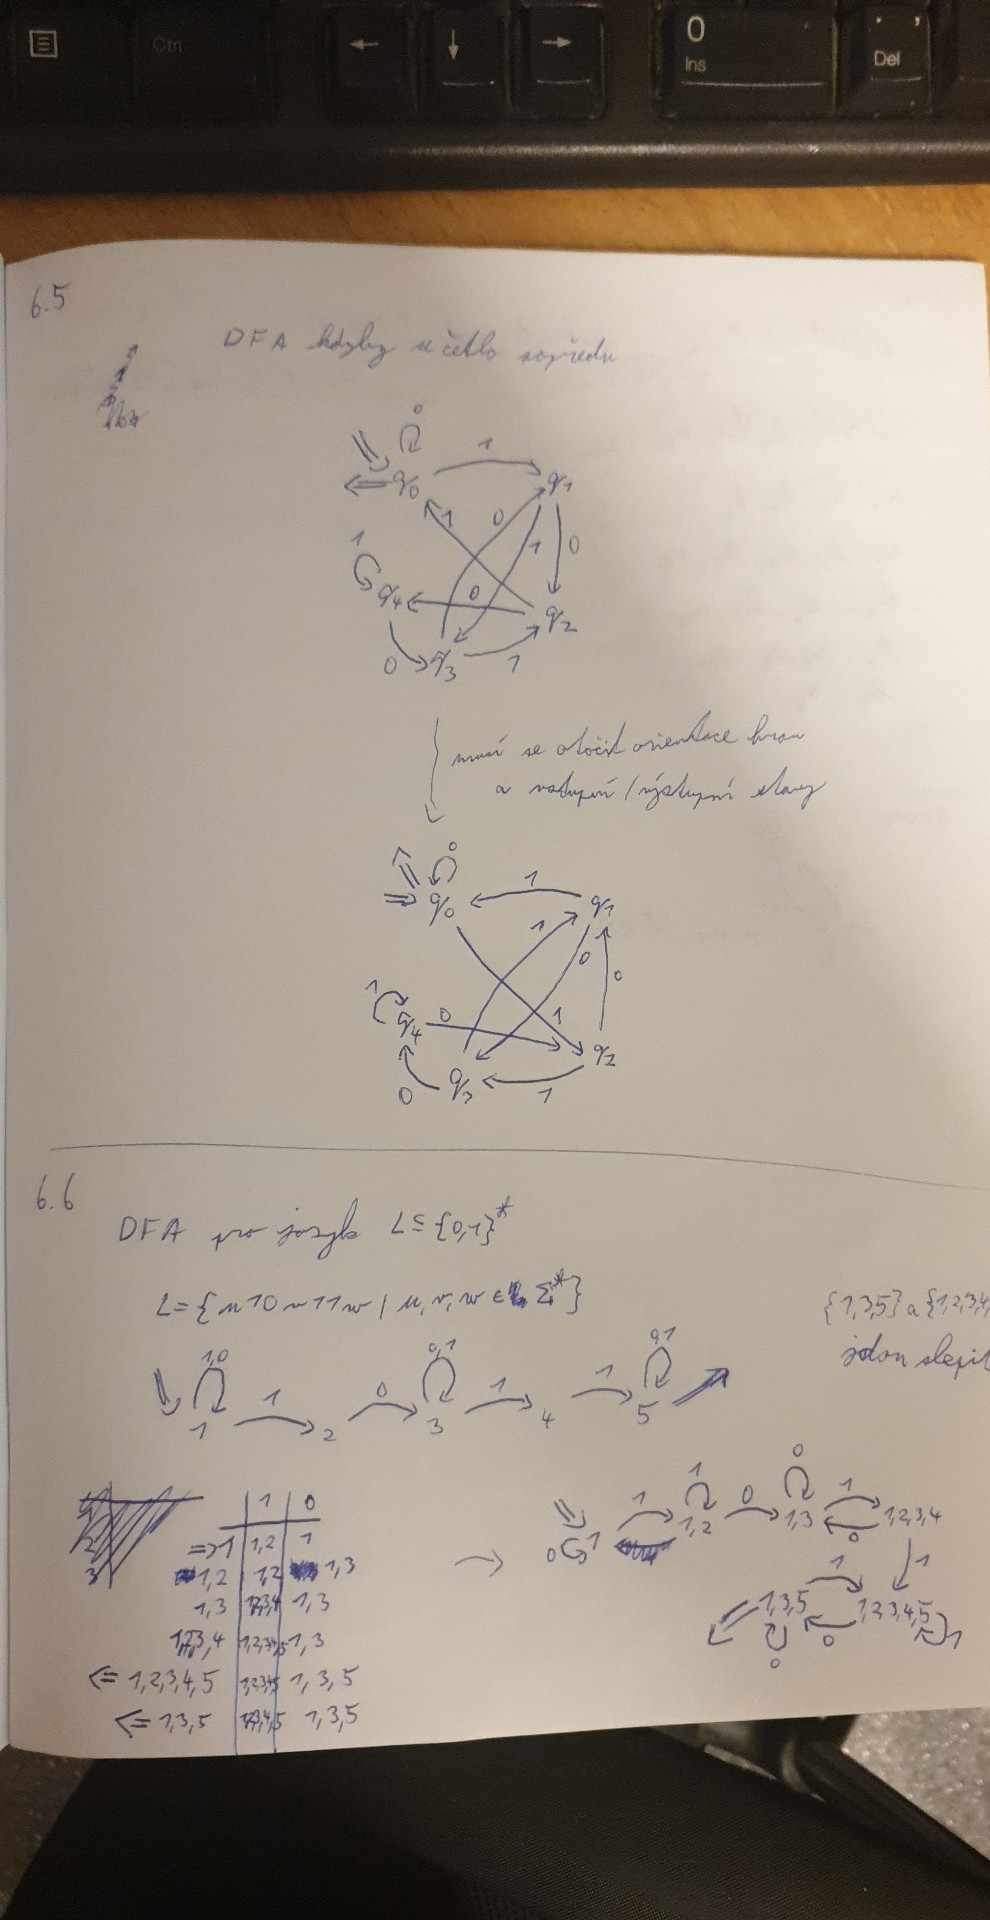 Ctrl
←
↓
→
0
Ins
. ,
Del
6.5
DFA kdyby se četlo zepředu
0
q0
1
q1
1
0
1
0
1
q4
0
q2
0
q3
1
musí se otočit orientace hran
a vstupní / výstupní stavy
0
q0
1
q1
1
0
0
1
q4
0
1
q2
0
q3
1
6.6
DFA pro jazyk L ⊆ {0,1}*
L = {u10v11w | u,v,w ∈ Σ*}
{1,3,5} a {1,2,3,4,
jdou slepit
1,0
0,1
0,1
1
0
1
1
1
2
3
4
5
1
2
3
1 0
⇒1 1,2 1
1,2 1,2 1,3
1,3 1,2,3,4 1,3
1,2,3,4 1,2,3,4,5 1,3
⇐ 1,2,3,4,5 1,2,3,4,5 1,3,5
⇐ 1,3,5 1,2,3,4,5 1,3,5
→
1
0
1
1
0
1
0 1
1,2
1,3
1,2,3,4
0
1
1
1,3,5
1,2,3,4,5
1
0
0